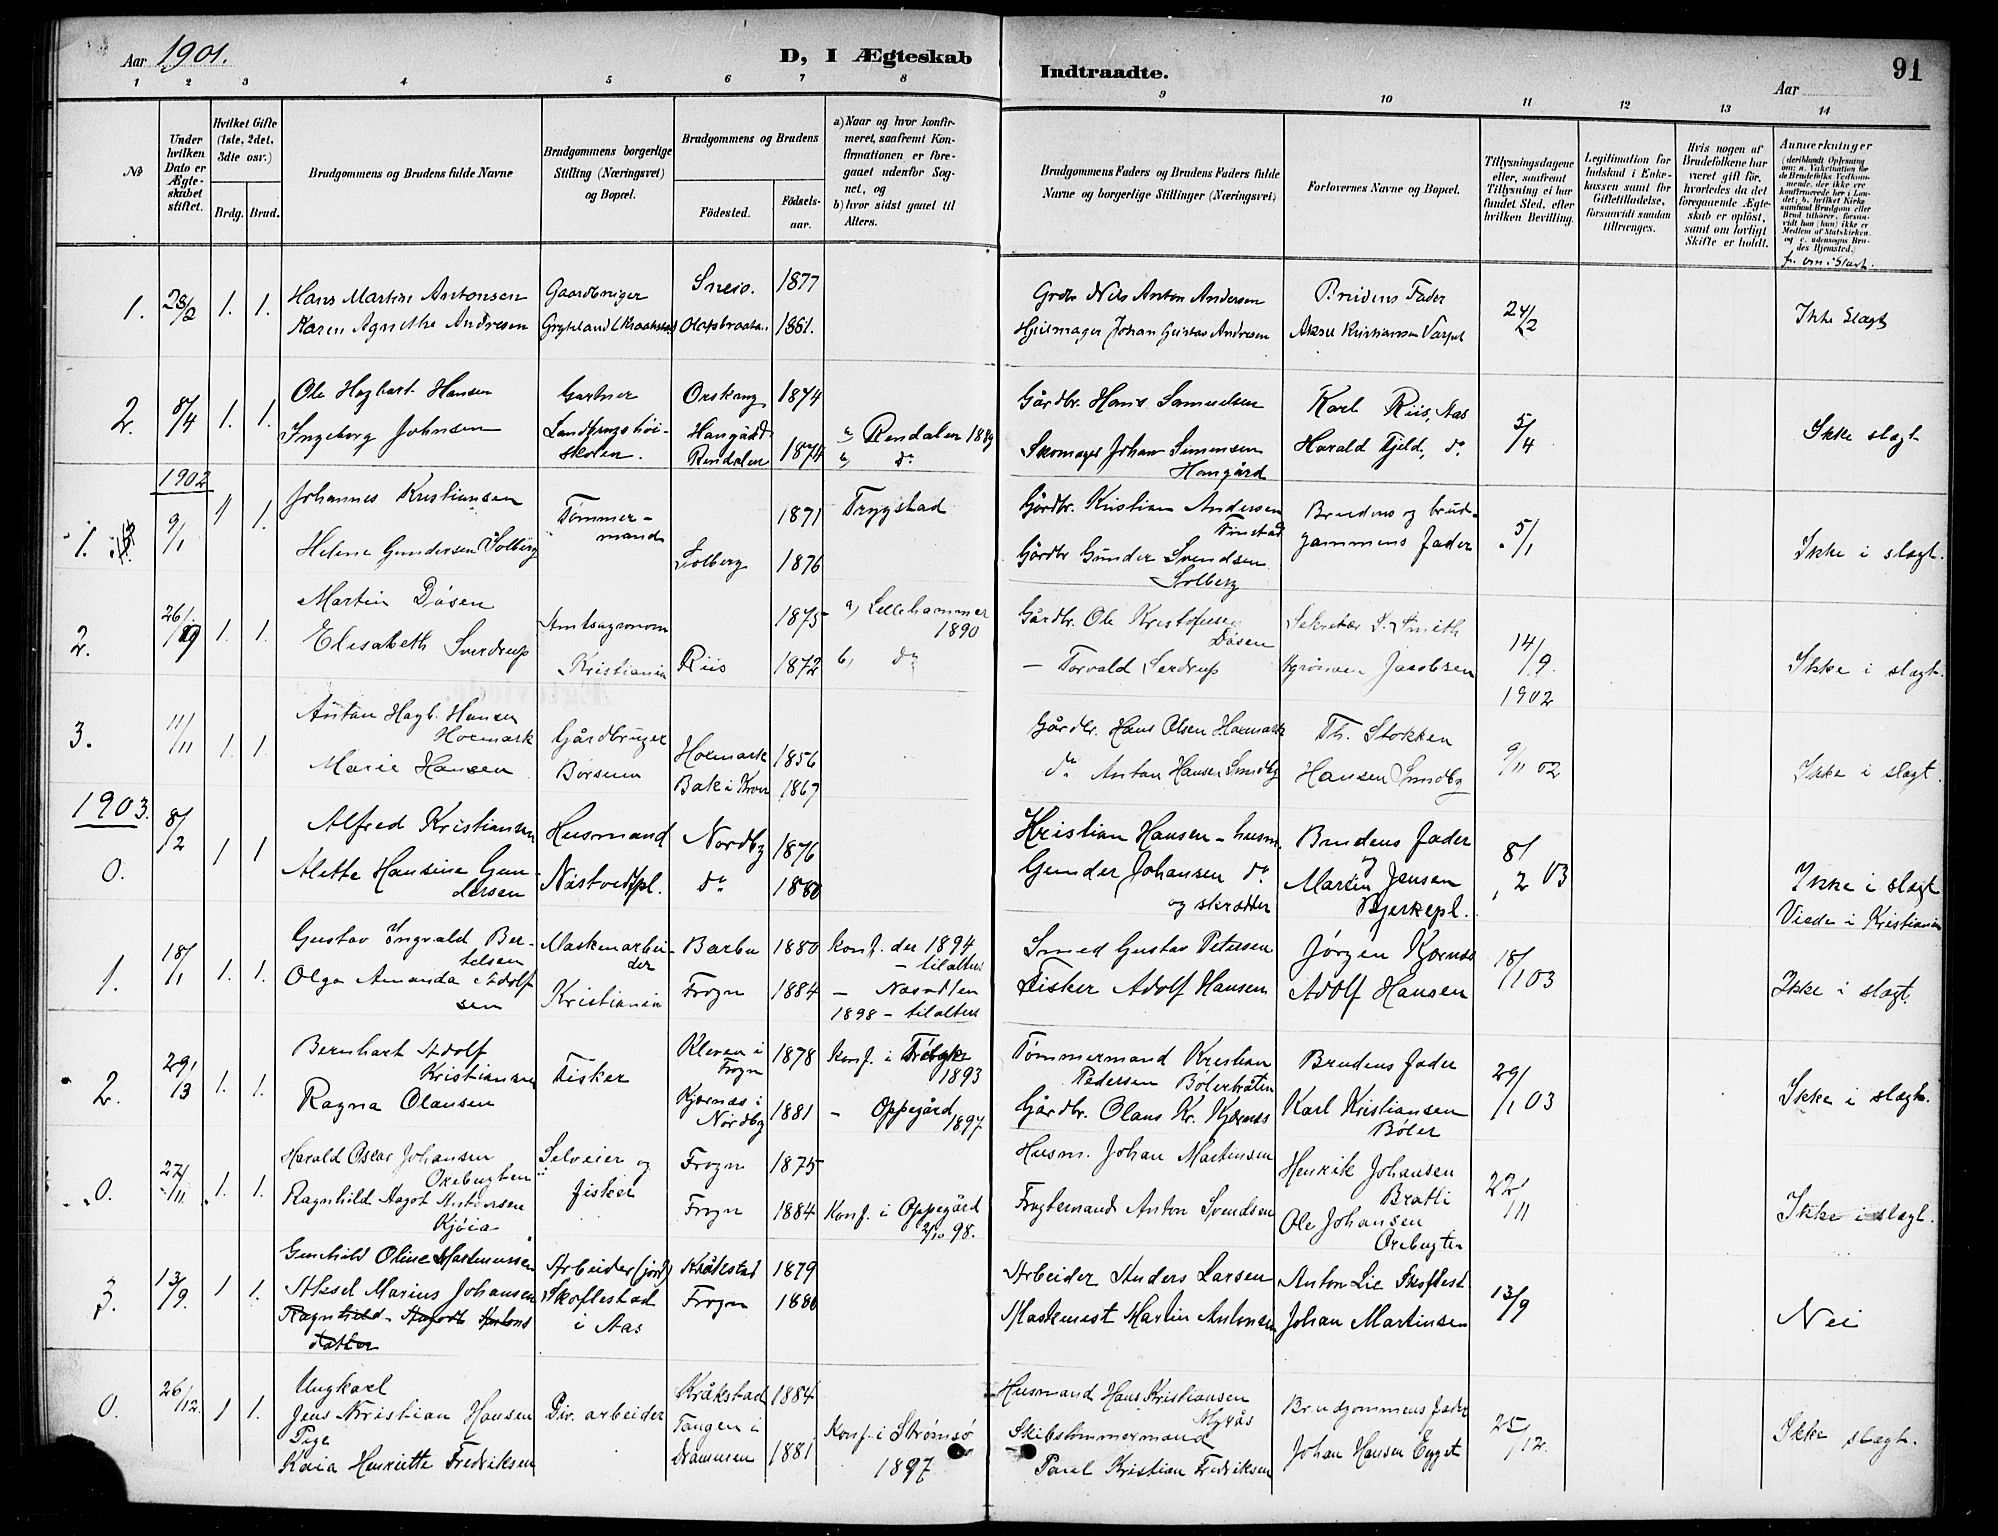 Aar 1901.
D, I Ægteskab
Indtraadte.
Aar
91
1 2 3 4 5 6 7 8 9 10 11 12 13 14
No
Under hvilken Dato er Ægteskabet stiftet.
Hvilket Gifte (1ste, 2det, 3die osv.)
Brdg. Brud.
Brudgommens og Brudens fulde Navne
Brudgommens borgerlige Stilling (Næringsvei) og Bopæl.
Brudgommens og Brudens
Fødested.
Fødselsaar.
a) Naar og hvor konfirmeret, saafremt Konfirmationen er foregaaet udenfor Sognet, og
b) hvor sidst gaaet til Alters.
Brudgommens Faders og Brudens Faders fulde Navne og borgerlige Stillinger (Næringsvei)
Forlovernes Navne og Bopæl.
Tillysningsdagene eller, saafremt Tillysning ei har fundet Sted, efter hvilken Bevilling.
Legitimation for Indskud i Enkekassen samt for Giftetilladelse, forsaavidt saadan tiltrænges.
Hvis nogen af Brudefolkene har været gift før, hvorledes da det foregaaende Ægteskab er opløst, samt om lovligt Skifte er holdt.
Anmerkninger
1. 28/2 1. 1. Hans Martin Antonsen Gaardbruger 1877 Grdbr Nils Anton Andersen Brudens Fader 24/2 Ikke Slægt
Karen Agnethe Andresen Gryteland i Kraakstad 1861. Hjulmager Johan Gustav Andresen
2. 8/4 1. 1. Ole Hagbart Hansen Gartner Orskaug 1874 Gårdbr. Hans Samuelsen Karl Riis, Aas 5/4 Ikke slægt
Ingeborg Johnsen Landbrugshøiskolen. Haugård Rendalen 1874 a) Rendalen 1889 b) do Skomager Johan Simensen Haugård Harald Fjeld, do
1902
1. 9/1 1 1. Johannes Kristiansen Tømmermand 1871 Trygstad Gårdbr. Kristian Andersen Finstad Brudens og brudgommens Fader 5/1 Ikke i slægt.
Helene Gundersen Solberg Solberg 1876 Gårdbr Gunder Svendsen Solberg
2. 26/9 1. 1. Martin Døsen Amtsagronom 1875 a) Lillehammer 1890 Gårdbr. Ole Kristofersen Døsen Sekretær S. Smith 14/9. 1902 Ikke i slægt.
Elisabeth Sverdrup Kristiania Riis 1872 b) do – Torvald Serdrup Agronom Jacobsen
3. 11/11 1. 1. Anton Hagb. Hansen Holmark Gårdbruger 1856 Gårdbr. Hans Olsen Th. Stokken 9/11 02 Ikke i slægt.
Marie Hansen Børsum Bak i Kroer 1867 do Anton Hansen Sundby Hansen Sundby
1903.
0. 8/2 1 1 Alfred Kristiansen Husmand Nordby 1876 Kristian Hansen – husm. Brudens Fader og 8/2 03 Ikke i slægt
Alette Hansine Gundersen Næstvedtpl. do 1880 Gunder Johansen do og skrædder Martin Jensen Bjerkepl. Viede i Kristiania
1. 18/1 1. 1. Gustav Yngvald Bertelsen Maskinarbeider Barbu 1880 Konf. der 1894 – til alters Smed Gustav Petersen Jørgen Kjærnæs 18/1 03 Ikke i slægt.
Olga Amanda Adolfsen Kristiania Frogn 1884 – Næsodden 1898 – til alters Fisker Adolf Hansen Adolf Hansen
2. 29/1 3 1. 1. Bernhart Adolf Kristiansen Fisker Kleven i Frogn 1878 Konf. i Drøbak 1893 Tømmermand Kristian Pedersen Bølerbråten Brudens Fader 29/1 03 Ikke i slægt.
Ragna Olausen Kjærnæs i Nordby 1881 – Oppegård 1897 Gårdbr. Olaus Kr. Kjærnæs Karl Kristiansen Bøler
0. 27/11 1. 1. Harald Oscar Johansen Orebugten Selveier og fisker Frogn 1875 Husm. Johan Martensen Henrik Johansen Bratli 22/11 Ikke i slægt.
Ragnhild Aagot Antonsen Kjøia Frogn 1884 Konf. i Oppegård 2/10 98. Frugtemand Anton Svendsen Ole Johansen Orebugten
3. 13/9. 1 1. Gunhild Oline Arbeider (jord) Kråkestad 1879 Arbeider Anders Larsen Anton Lie Skoflest 13/9 Nei
Aksel Marius Johansen Skoflestad i Aas Frogn 1880 Maskinist Martin Antonsen Johan Martinsen
0. 26/12. 1 1. Ungkarl Jens Kristian Hansen Div. arbeider Kråkstad 1884 Husmand Hans Kristiansen Brudgommens fader 25/12. Ikke slægt.
Pige Kaia Henriette Fredriksen Tangen i Drammen 1881 Konf. i Strømsø 1897 Skibstømmermand Paul Kristian Fredriksen Johan Hansen